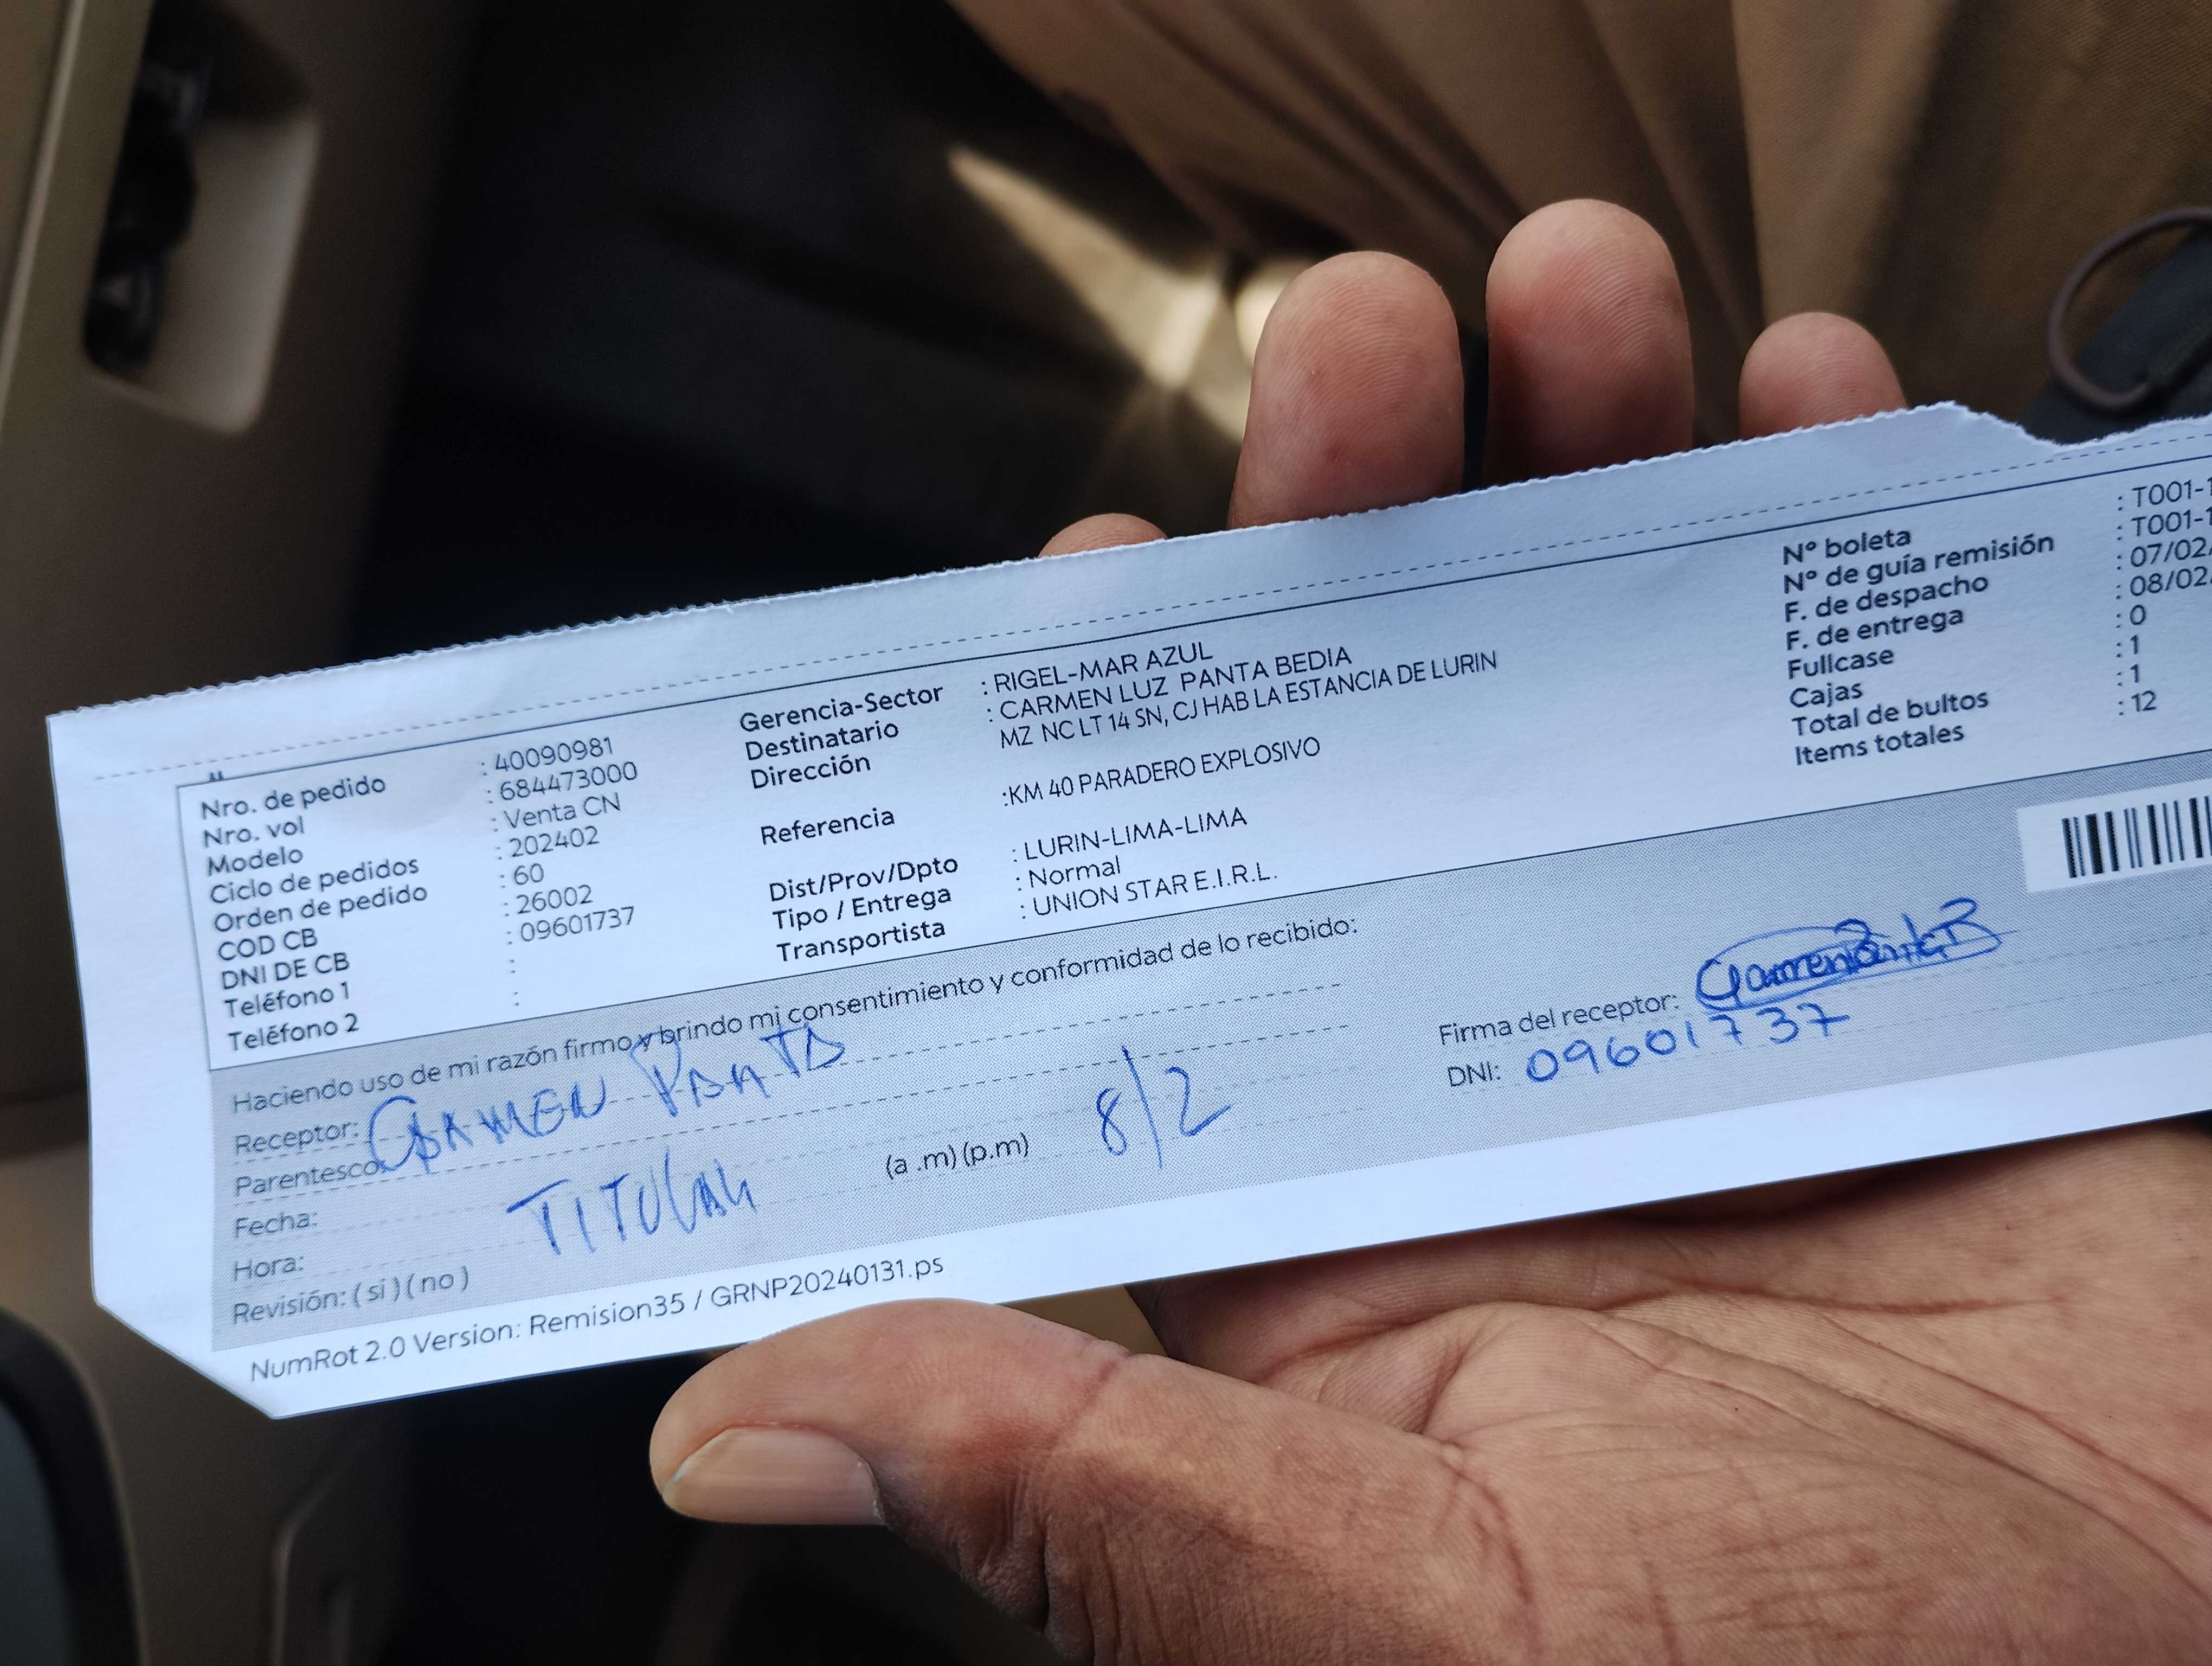 Nro. de pedido : 40090981
Nro. vol : 684473000
Modelo : Venta CN
Ciclo de pedidos : 202402
Orden de pedido : 60
COD CB : 26002
DNI DE CB : 09601737
Teléfono 1 :
Teléfono 2 :
Gerencia-Sector : RIGEL-MAR AZUL
Destinatario : CARMEN LUZ PANTA BEDIA
Dirección MZ NC LT 14 SN, CJ HAB LA ESTANCIA DE LURIN
Referencia :KM 40 PARADERO EXPLOSIVO
Dist/Prov/Dpto : LURIN-LIMA-LIMA
Tipo / Entrega : Normal
Transportista : UNION STAR E.I.R.L.
Nº boleta : T001-1
Nº de guía remisión : T001-1
F. de despacho : 07/02/
F. de entrega : 08/02/
Fullcase : 0
Cajas : 1
Total de bultos : 1
Items totales : 12
Haciendo uso de mi razón firmo y brindo mi consentimiento y conformidad de lo recibido:
Receptor: CARMEN PANTA
Parentesco:
Fecha: TITULAR 8/2
Hora: (a .m) (p.m)
Revisión: ( si ) ( no )
Firma del receptor: Carmen Panta B
DNI: 09601737
NumRot 2.0 Version: Remision35 / GRNP20240131.ps